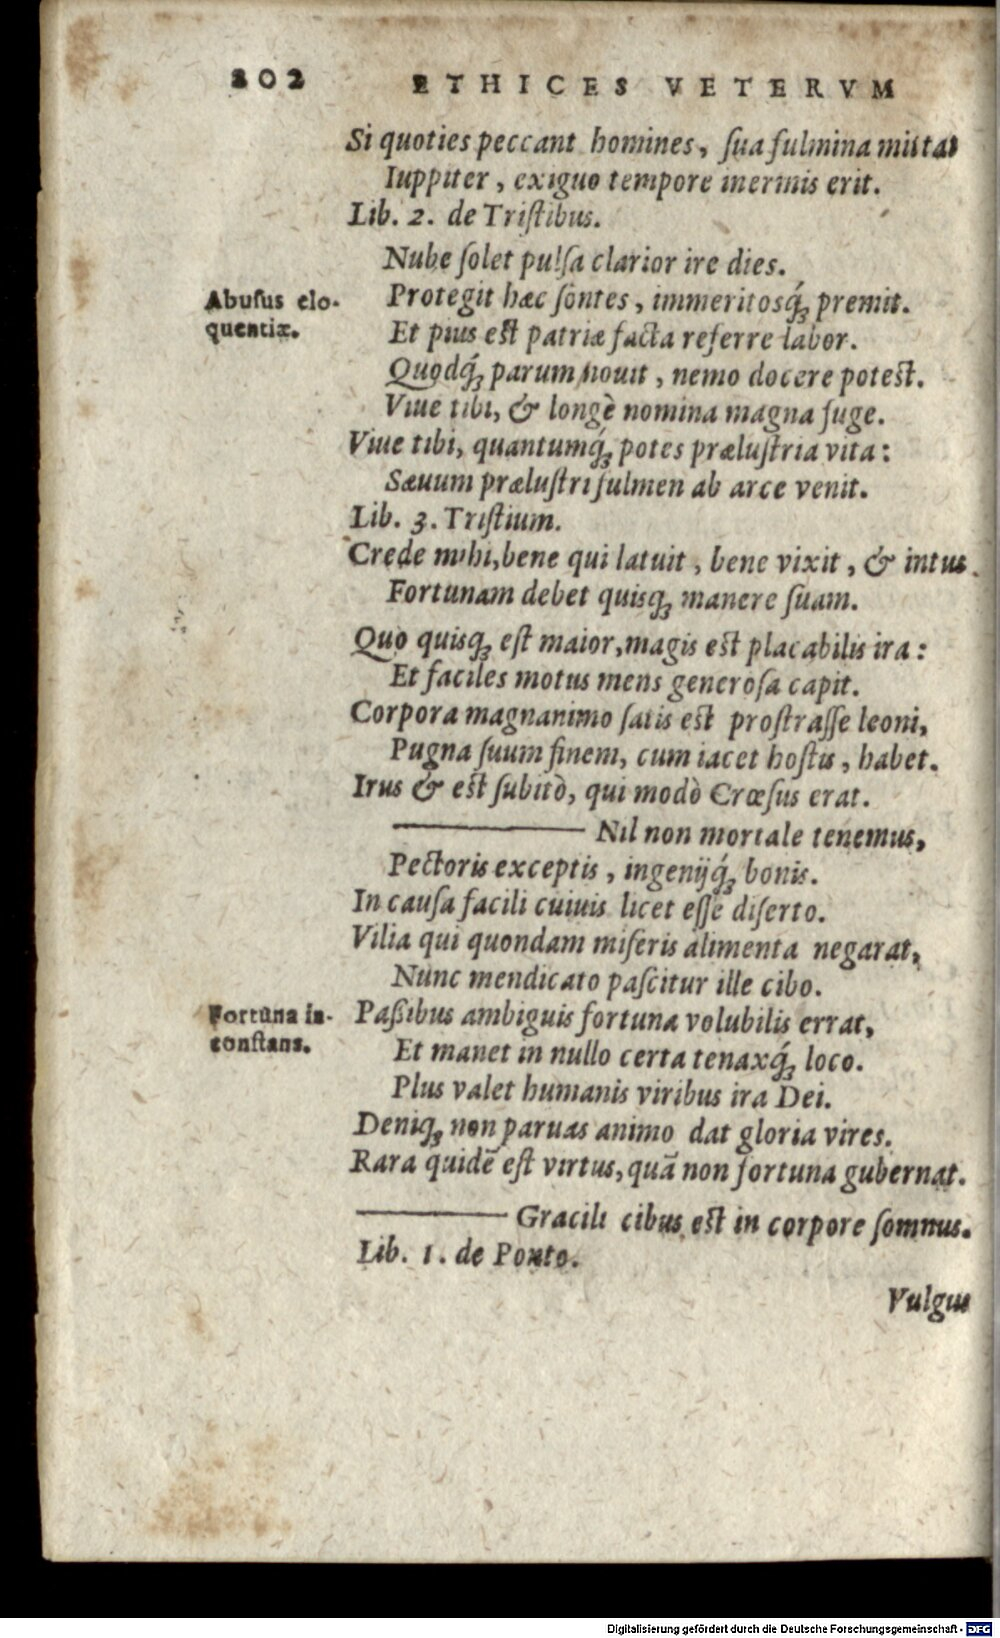 202 ETHICES VETERVM
Si quoties peccant homines, ſua fulmina mittat
Iuppiter, exiguo tempore inermis erit.
Lib. 2. de Triſtibus.
Nube ſolet pulſa clarior ire dies.
Abuſus elo-
quentiæ.
Protegit hæc ſontes, immeritosq́ꝫ premit.
Et pius eſt patriæ facta referre labor.
Quodq́ꝫ parum nouit, nemo docere poteſt.
Viue tibi, & longè nomina magna fuge.
Viue tibi, quantumq́ꝫ potes præluſtria vita:
Sæuum præluſtri fulmen ab arce venit.
Lib. 3. Triſtium.
Crede mihi, bene qui latuit, bene vixit, & intus
Fortunam debet quisqꝫ manere ſuam.
Quo quisqꝫ eſt maior, magis eſt placabilis ira:
Et faciles motus mens generoſa capit.
Corpora magnanimo ſatis eſt proſtraſſe leoni,
Pugna ſuum finem, cum iacet hoſtis, habet.
Irus & eſt ſubitò, qui modò Crœſus erat.
——— Nil non mortale tenemus,
Pectoris exceptis, ingenijq́ꝫ bonis.
In cauſa facili cuiuis licet eſſe diſerto.
Vilia qui quondam miſeris alimenta negarat,
Nunc mendicato paſcitur ille cibo.
Fortuna in-
conſtans.
Paßibus ambiguis fortuna volubilis errat,
Et manet in nullo certa tenaxq́ꝫ loco.
Plus valet humanis viribus ira Dei.
Deniqꝫ non paruas animo dat gloria vires.
Rara quidē eſt virtus, quā non fortuna gubernat.
——— Gracili cibus eſt in corpore ſomnus.
Lib. 1. de Ponto.
Vulgus
Digitalisierung gefördert durch die Deutsche Forschungsgemeinschaft - DFG